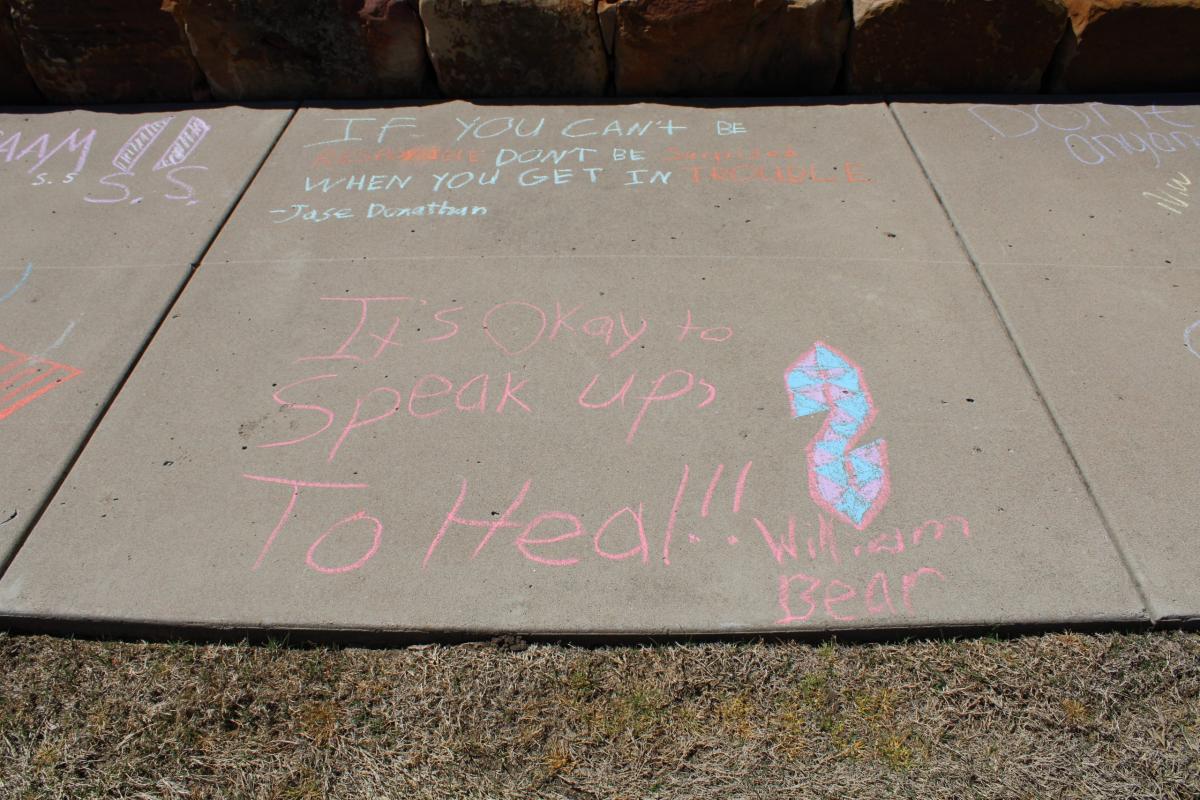 IF YOU CAN't BE
RESPONSIBLE DON'T BE Surprised
WHEN YOU GET IN TROUBLE
-Jase Donathan
It's Okay to
Speak up,
To Heal!!!
William
Bear
AAM !!
S.S
S.S.
DONt
anyon